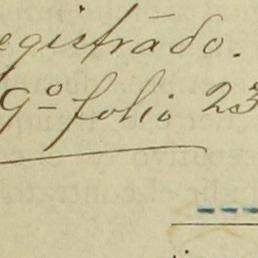 egistrádo.
9º folio 23